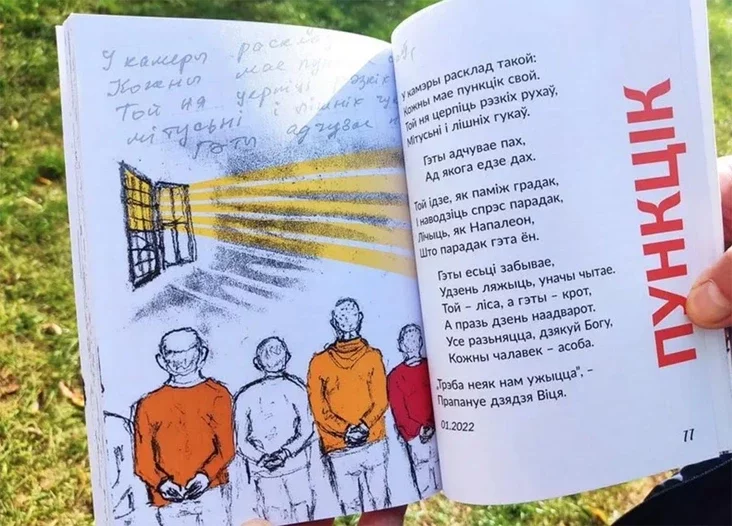 У камеры раскла
Кожны мае пун
Той ня церпіць рэзкіх
мітусьні і лішніх гу
Гэты адчувае п
У камэры расклад такой:
Кожны мае пункцік свой.
Той ня церпіць рэзкіх рухаў,
Мітусьні і лішніх гукаў.
Гэты адчувае пах,
Ад якога едзе дах.
Той ідзе, як паміж градак,
І наводзіць спрэс парадак,
Лічыць, як Напалеон,
Што парадак гэта ён.
Гэты есьці забывае,
Удзень ляжыць, уначы чытае.
Той – ліса, а гэты – крот,
А празь дзень наадварот.
Усе разьняцца, дзякуй Богу,
Кожны чалавек – асоба.
„Трэба неяк нам ужыцца", –
Прапануе дзядзя Віця.
01.2022
ПУНКЦІК
77